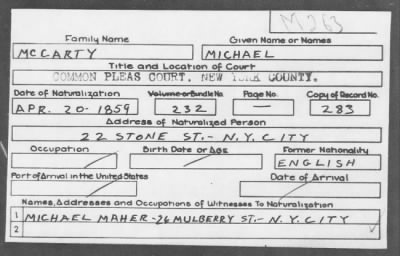 M263
Family Name Given Name or Names
MCCARTY MICHAEL
Title and Location of Court
COMMON PLEAS COURT, NEW YORK COUNTY.
Date of Naturalization Volume or Bundle No. Page No. Copy of Record No.
APR. 20-1859 232 — 283
Address of Naturalized Person
22 STONE ST.- N.Y. CITY
Occupation Birth Date or Age Former Nationality
ENGLISH
Port of Arrival in the United States Date of Arrival
Names, Addresses and Occupations of Witnesses To Naturalization
1 MICHAEL MAHER-26 MULBERRY ST.- N.Y. CITY
2